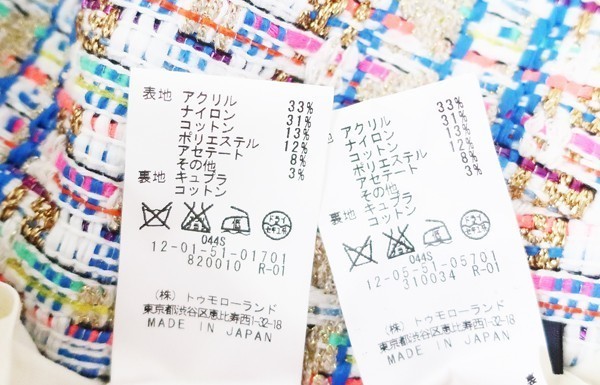 表地 アクリル 33%
ナイロン 31%
コットン 13%
ポリエステル 12%
アセテート 8%
その他 3%
裏地 キュプラ
コットン
低
ドライ
セキユ系
044S
12-01-51-01701
820010 R-01
(株) トゥモローランド
東京都渋谷区恵比寿西1-32-18
MADE IN JAPAN
アクリル 33%
ナイロン 31%
コットン 13%
ポリエステル 12%
アセテート 8%
その他 3%
裏地 キュプラ
コットン
低
ドライ
セキユ系
044S
12-05-51-05701
310034 R-01
(株) トゥモローランド
東京都渋谷区恵比寿西1-32-18
MADE IN JAPAN
表